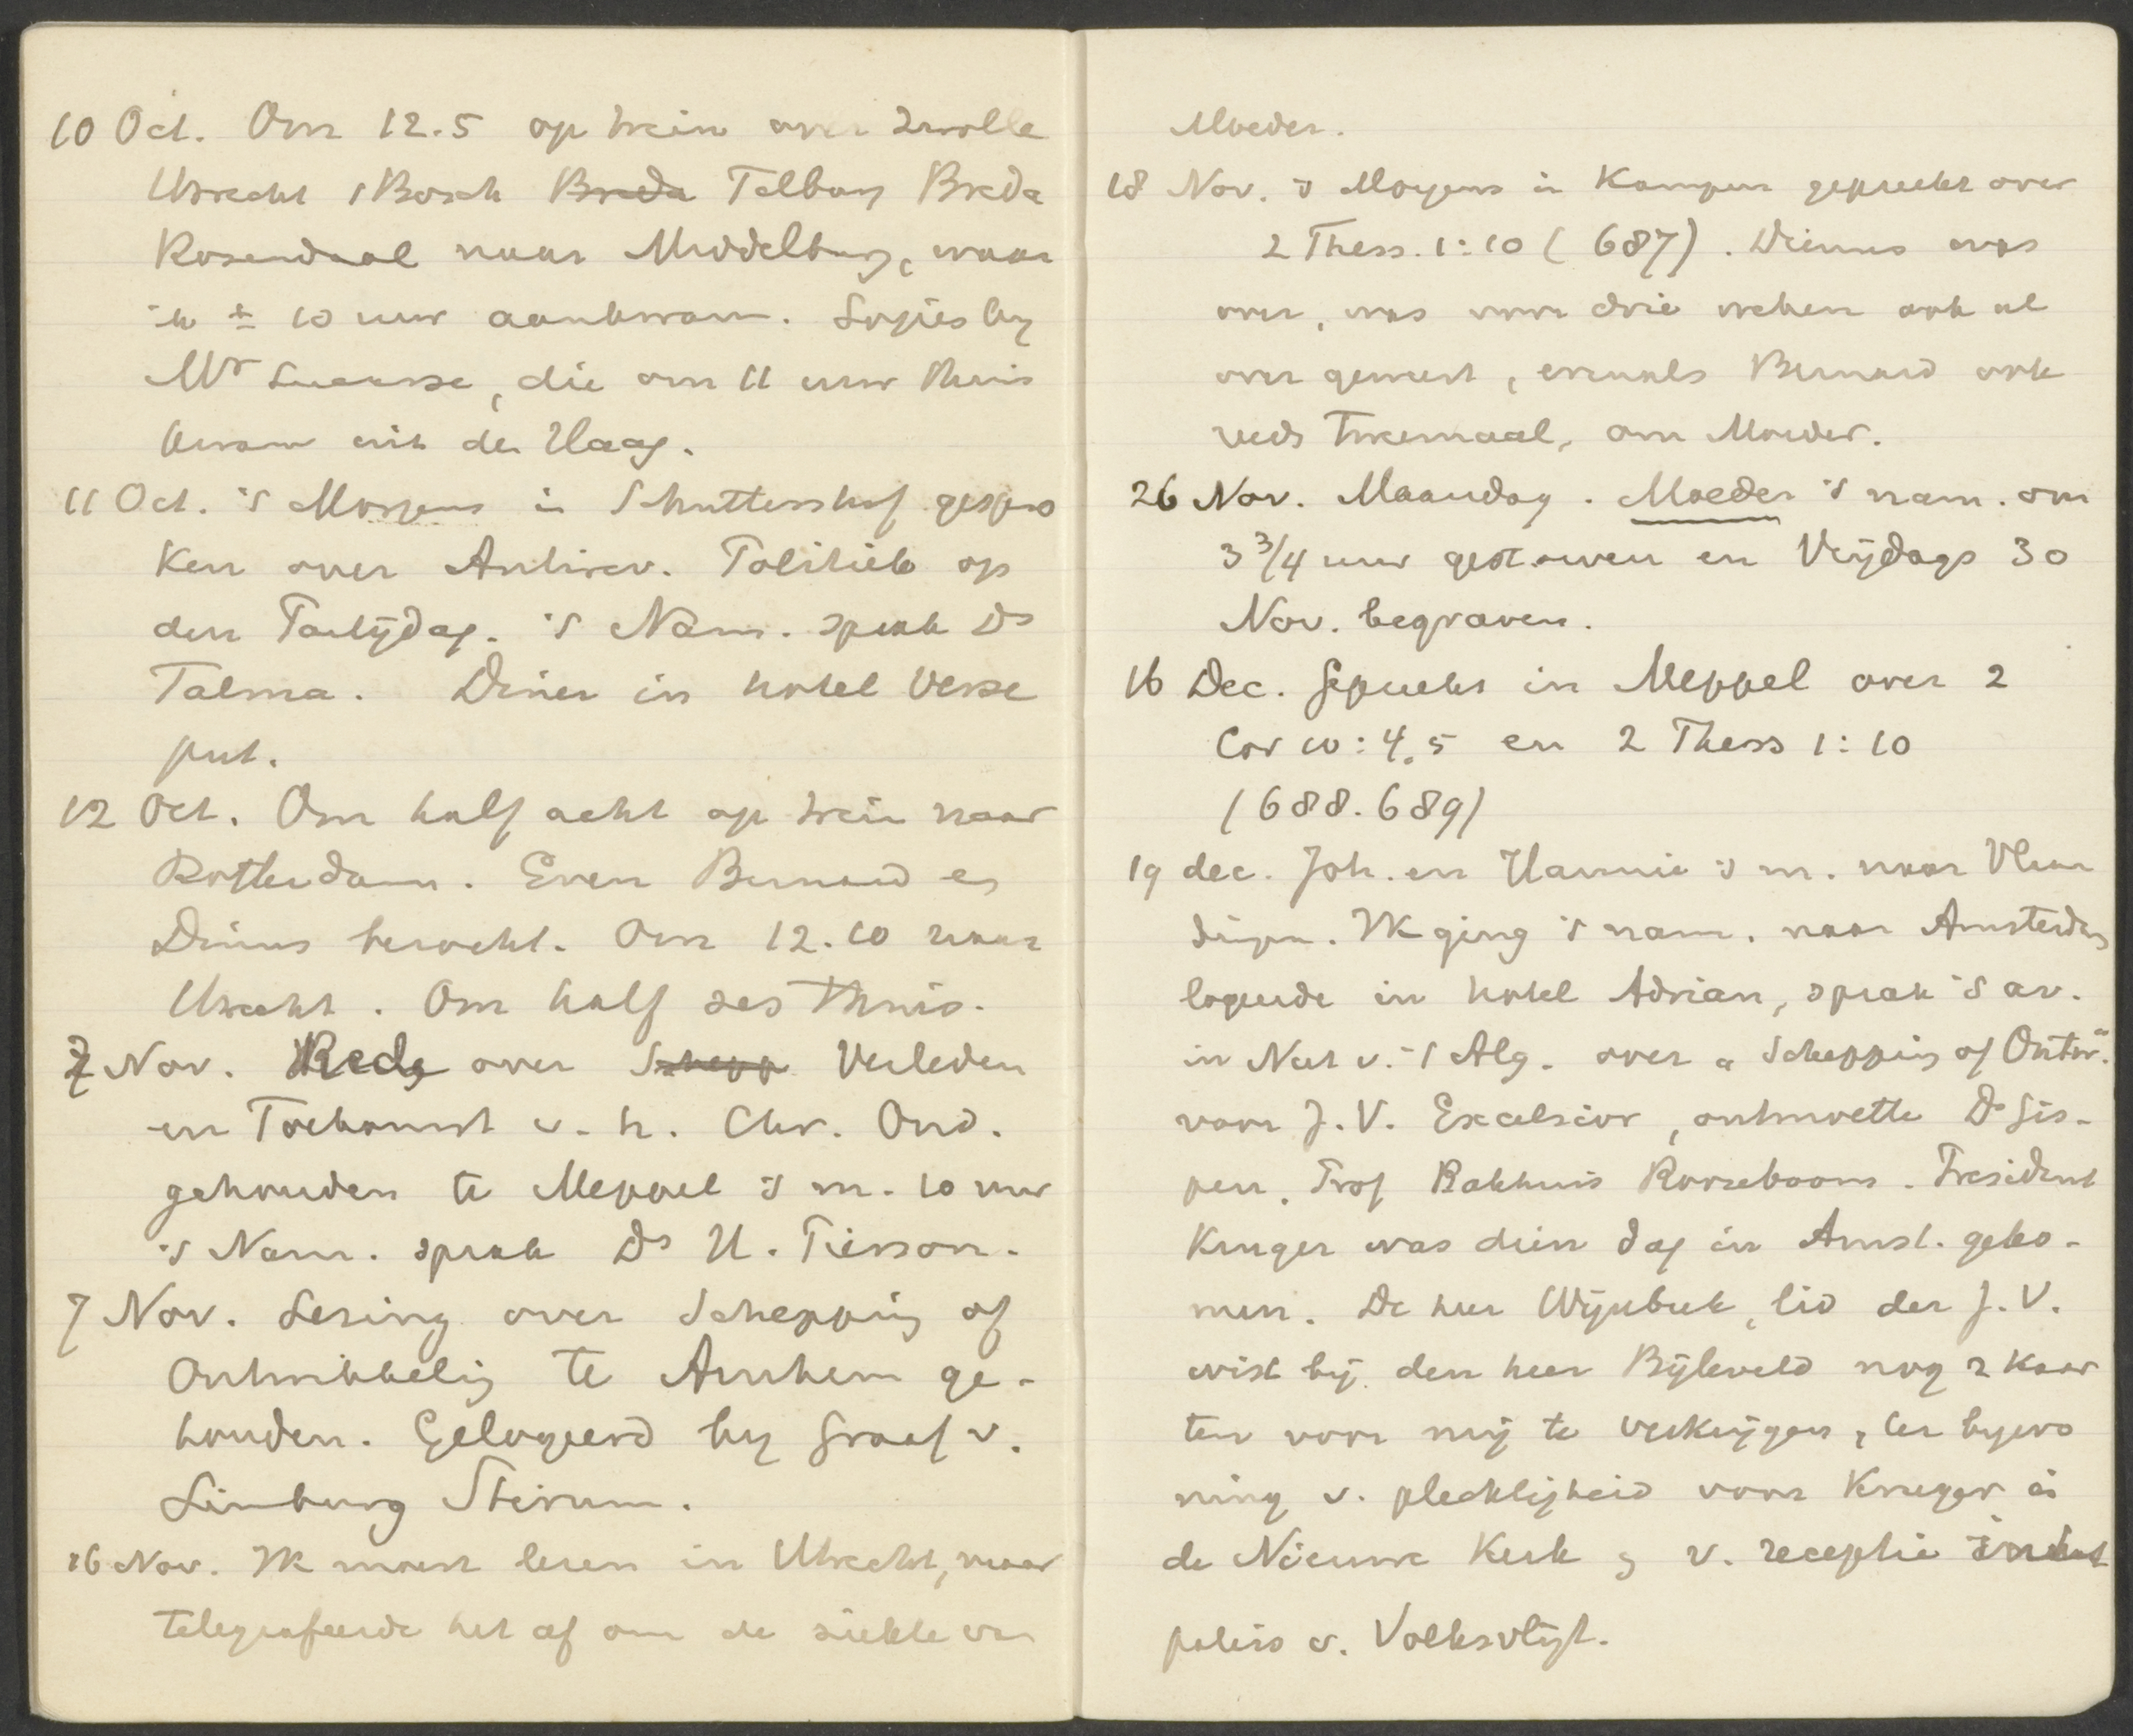 10 Oct. Om 12.5 op trein over Zwolle
Utrecht 's Bosch Breda Tilburg Breda
Rosendaal naar Middelburg, waar
ik ± 10 uur aankwam. Logies by
Mr Lucasse, die om 11 uur thuis
kwam uit den Haag.
11 Oct. 's Morgens in Schuttershof gespro
ken over Antirev. Politiek op
den Partijdag. 's Nam. sprak Ds
Talma. Diner in hotel Verse
put.
12 Oct. Om half acht op trein naar
Rotterdam. Even Bernard en
Dinus bezocht. Om 12.10 naar
Utrecht. Om half zes thuis.
7 Nov. Rede over Schepp Verleden
en Toekomst v. h. Chr. Ond.
gehouden te Meppel 's m. 10 uur
's Nam. sprak Ds H. Pierson.
7 Nov. Lezing over Schepping of
Ontwikkeling te Arnhem ge-
houden. Gelogeerd by Graaf v.
Limburg Stirum.
16 Nov. Ik moest lezen in Utrecht, maar
telegrafeerde het af om de ziekte van
Moeder.
18 Nov. 's Morgens in Kampen gepreekt over
2 Thess. 1:10 (687). Dinus was
over, was voor drie weken ook al
over geweest, evenals Bernard ook
reeds tweemaal, om Moeder.
26 Nov. Maandag. Moeder 's nam. om
3 3/4 uur gestorven en Vrijdags 30
Nov. begraven.
16 Dec. Gepreekt in Meppel over 2
Cor 10:4,5 en 2 Thess 1:10
(688.689)
19 dec. Joh. en Hannie 's m. naar Vlaar
dingen. Ik ging 's nam. naar Amsterdam
logeerde in hotel Adrian, sprak 's av.
in Nut v. 't Alg. over "Schepping of Ontw."
voor J.V. Excelsior, ontmoette Ds Gis-
pen, Prof Bakhuis Roozeboom. President
Kruger was dien dag in Amst. geko-
men. De heer Wijnbeek, lid der J.V.
wist bij den heer Bijleveld nog 2 kaar
ten voor mij te verkrijgen, ter bywo
ning v. plechtigheid voor Kruger in
de Nieuwe Kerk en v. receptie in het
paleis v. Volksvlijt.